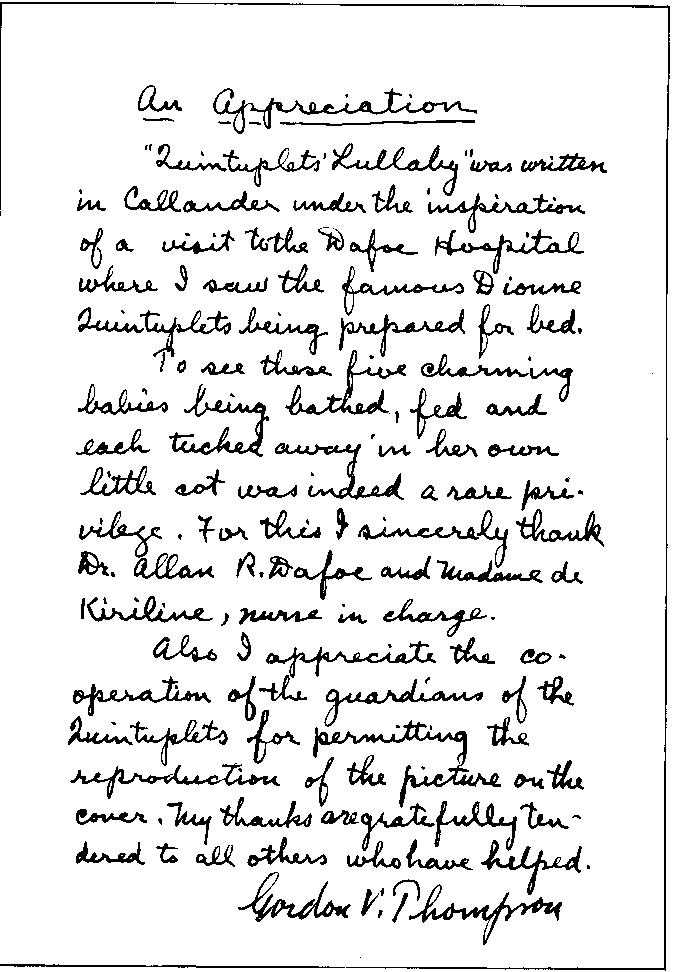 An Appreciation
"Quintuplets' Lullaby" was written
in Callander under the inspiration
of a visit to the Dafoe Hospital
where I saw the famous Dionne
Quintuplets being prepared for bed.
To see these five charming
babies being bathed, fed and
each tucked away in her own
little cot was indeed a rare pri-
vilege. For this I sincerely thank
Dr. Allan R. Dafoe and Madame de
Kiriline, nurse in charge.
Also I appreciate the co-
operation of the guardians of the
Quintuplets for permitting the
reproduction of the picture on the
cover. My thanks are gratefully ten-
dered to all others who have helped.
Gordon V. Thompson